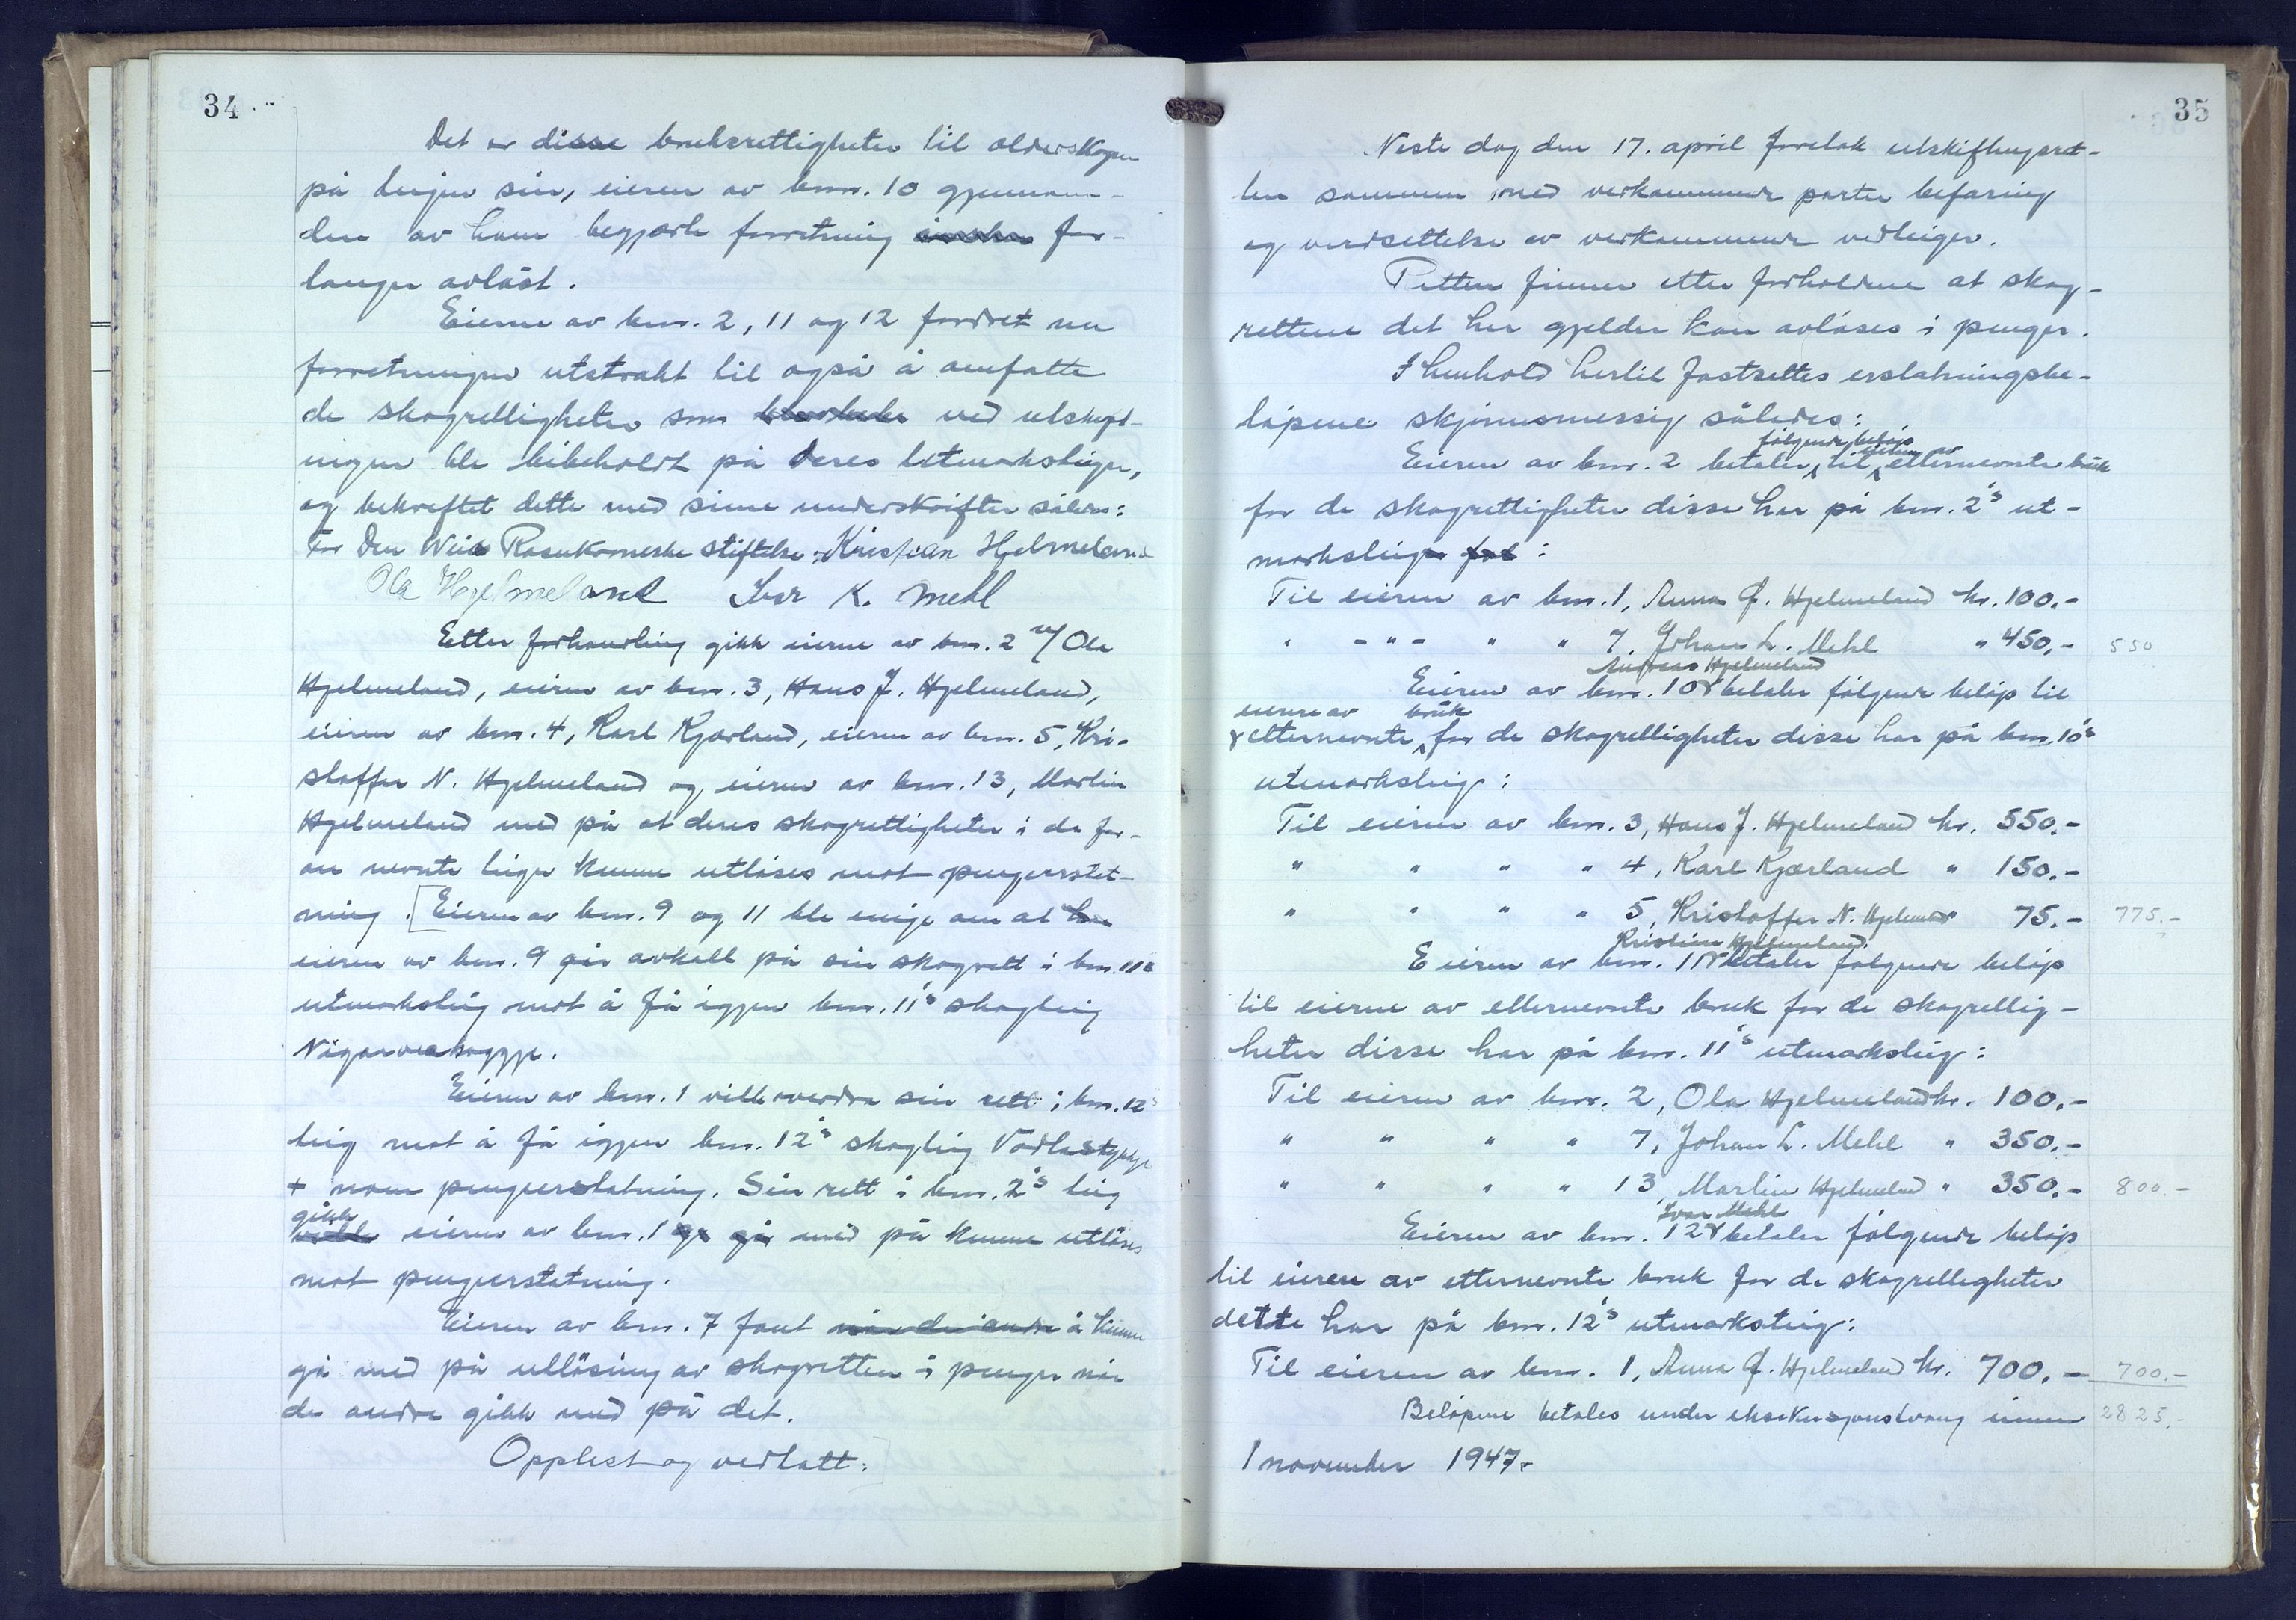 34
Det er disse bruksrettigheter til olderskogen
på teigen sin, eieren av bnr. 10 gjennom
den av ham begjærte forretning for-
langer avløst.
Eierne av bnr. 2, 11 og 12 fordret nu
forretningen utstrakt til også å omfatte
de skogrettigheter som ved utskift-
ningen ble bibeholdt på deres utmarksteiger,
og bekreftet dette med sine underskrifter således:
For Den Weis Rosenkroneske stiftelse: Kristian Hjelmeland
Ola Hjelmeland Ivar K. Mehl
Etter forhandling gikk eierne av bnr. 2 v/ Ola
Hjelmeland, eieren av bnr. 3, Hans J. Hjelmeland,
eieren av bnr. 4, Karl Kjærland, eieren av bnr. 5, Kri-
stoffer N. Hjelmeland og eieren av bnr. 13, Martin
Hjelmeland med på at deres skogrettigheter i de for-
an nevnte teiger kunne utløses mot pengeerstat-
ning. [Eieren av bnr. 9 og 11 ble enige om at
eieren av bnr. 9 gir avkall på sin skogrett i bnr. 11s
utmarksteig mot å få igjen bnr. 11's skogteig
Eieren av bnr. 1 vilde overdra sin rett i bnr. 12s
teig mot å få igjen bnr. 12's skogteig
+ noen pengeerstatning. Sin rett i bnr. 2's teig
gikk
vilde eieren av bnr. 1 med på kunne utløses
mot pengeerstatning.
Eieren av bnr. 7 fant når de andre å kunne
gå med på utløsing av skogretten i penger når
de andre gikk med på det.
Opplest og vedtatt.]
35
Neste dag den 17. april foretok utskiftingsret-
ten sammen med vedkommende parter befaring
og verdsettelse av vedkommende vedteiger.
Retten finner etter forholdene at skog-
rettene det her gjelder kan avløses i penger.
I henhold hertil fastsettes erstatningsbe-
løpene skjønnsmessig således:
følgende beløp eieren av
Eieren av bnr. 2 betaler til etternevnte bruk
for de skogrettigheter disse har på bnr. 2's ut-
marksteig :
Til eieren av bnr. 1, Anna G. Hjelmeland kr. 100.-
" - " - " " 7, Johan L. Mehl " 450.- 550
Andreas Hjelmeland
Eieren av bnr. 10 betaler følgende beløp til
eierne av bruk
etternevnte for de skogrettigheter disse har på bnr. 10's
utmarksteig:
Til eieren av bnr. 3, Hans J. Hjelmeland kr. 550.-
" " " " 4, Karl Kjærland " 150.-
" " " " 5, Kristoffer N. Hjelmeland " 75.- 775.-
Kristian Hjelmeland
Eieren av bnr. 11 betaler følgende beløp
til eierne av etternevnte bruk for de skogrettig-
heter disse har på bnr. 11's utmarksteig:
Til eieren av bnr. 2, Ola Hjelmeland kr. 100.-
" " " " 7, Johan L. Mehl " 350.-
" " " " 13, Martin Hjelmeland " 350.- 800.-
Ivar Mehl
Eieren av bnr. 12 betaler følgende beløp
til eieren av etternevnte bruk for de skogrettigheter
dette har på bnr. 12's utmarksteig:
Til eieren av bnr. 1, Anna G. Hjelmeland kr. 700.- 700.-
Beløpene betales under eksekusjonstvang innen 2825.-
1 november 1947.